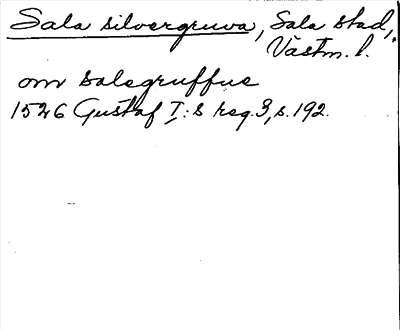 Sala silvergruva, Sala stad,
Västm. l.
om salegruffue
1526 Gustaf I:s reg. 3, s. 192.